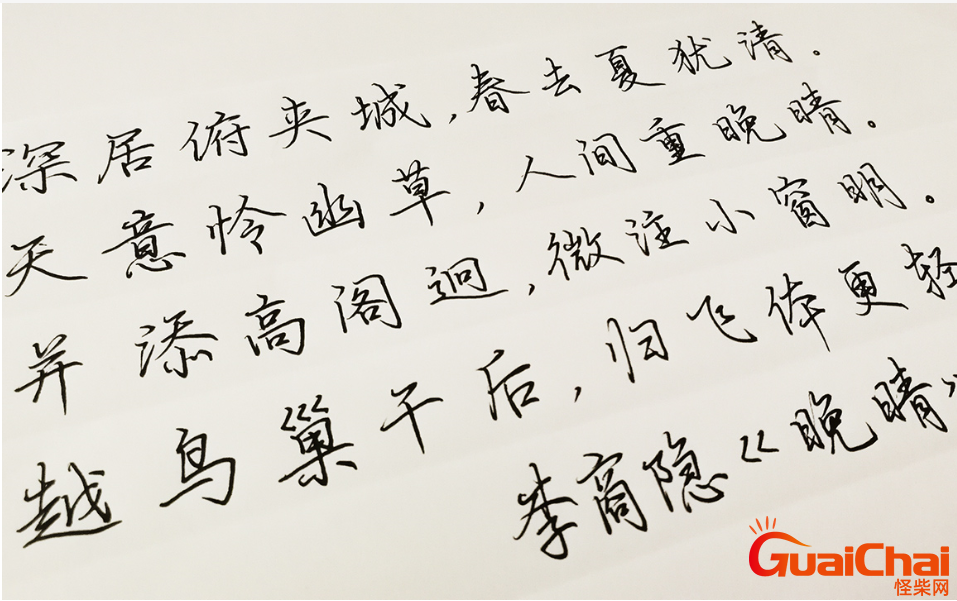 深居俯夹城,春去夏犹清.
天意怜幽草,人间重晚晴.
并添高阁迥,微注小窗明.
越鸟巢午后,归飞体更轻
李商隐《晚晴》
GuaiChai
怪柴网